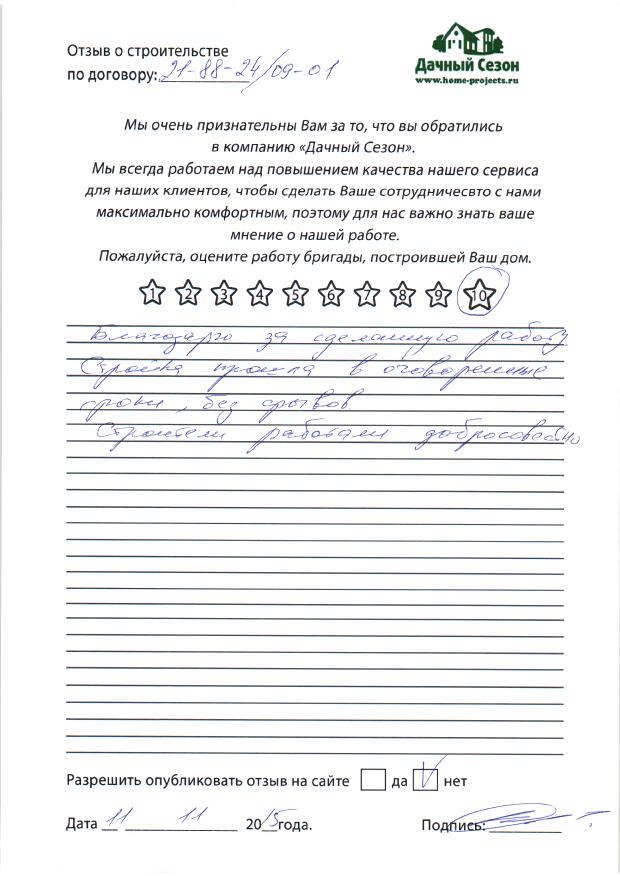 Отзыв о строительстве
по договору: 21-88-24/09-01
Дачный Сезон
www.home-projects.ru
Мы очень признательны Вам за то, что вы обратились
в компанию «Дачный Сезон».
Мы всегда работаем над повышением качества нашего сервиса
для наших клиентов, чтобы сделать Ваше сотрудничевто с нами
максимально комфортным, поэтому для нас важно знать ваше
мнение о нашей работе.
Пожалуйста, оцените работу бригады, построившей Ваш дом.
1 2 3 4 5 6 7 8 9 10
Благодарю за сделанную работу
Стройка прошла в оговоренные
сроки, без срывов
Строители работали добросовестно
Разрешить опубликовать отзыв на сайте да нет
Дата 11 11 2015года. Подпись: